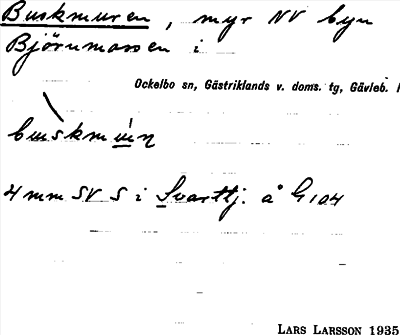 Buskmuren, myr NV byn
Björnmossen i
Ockelbo sn, Gästriklands v. doms. tg, Gävleb.
buskmu̇n
4 mm SV S i Svarttj. å G 104
LARS LARSSON 1935